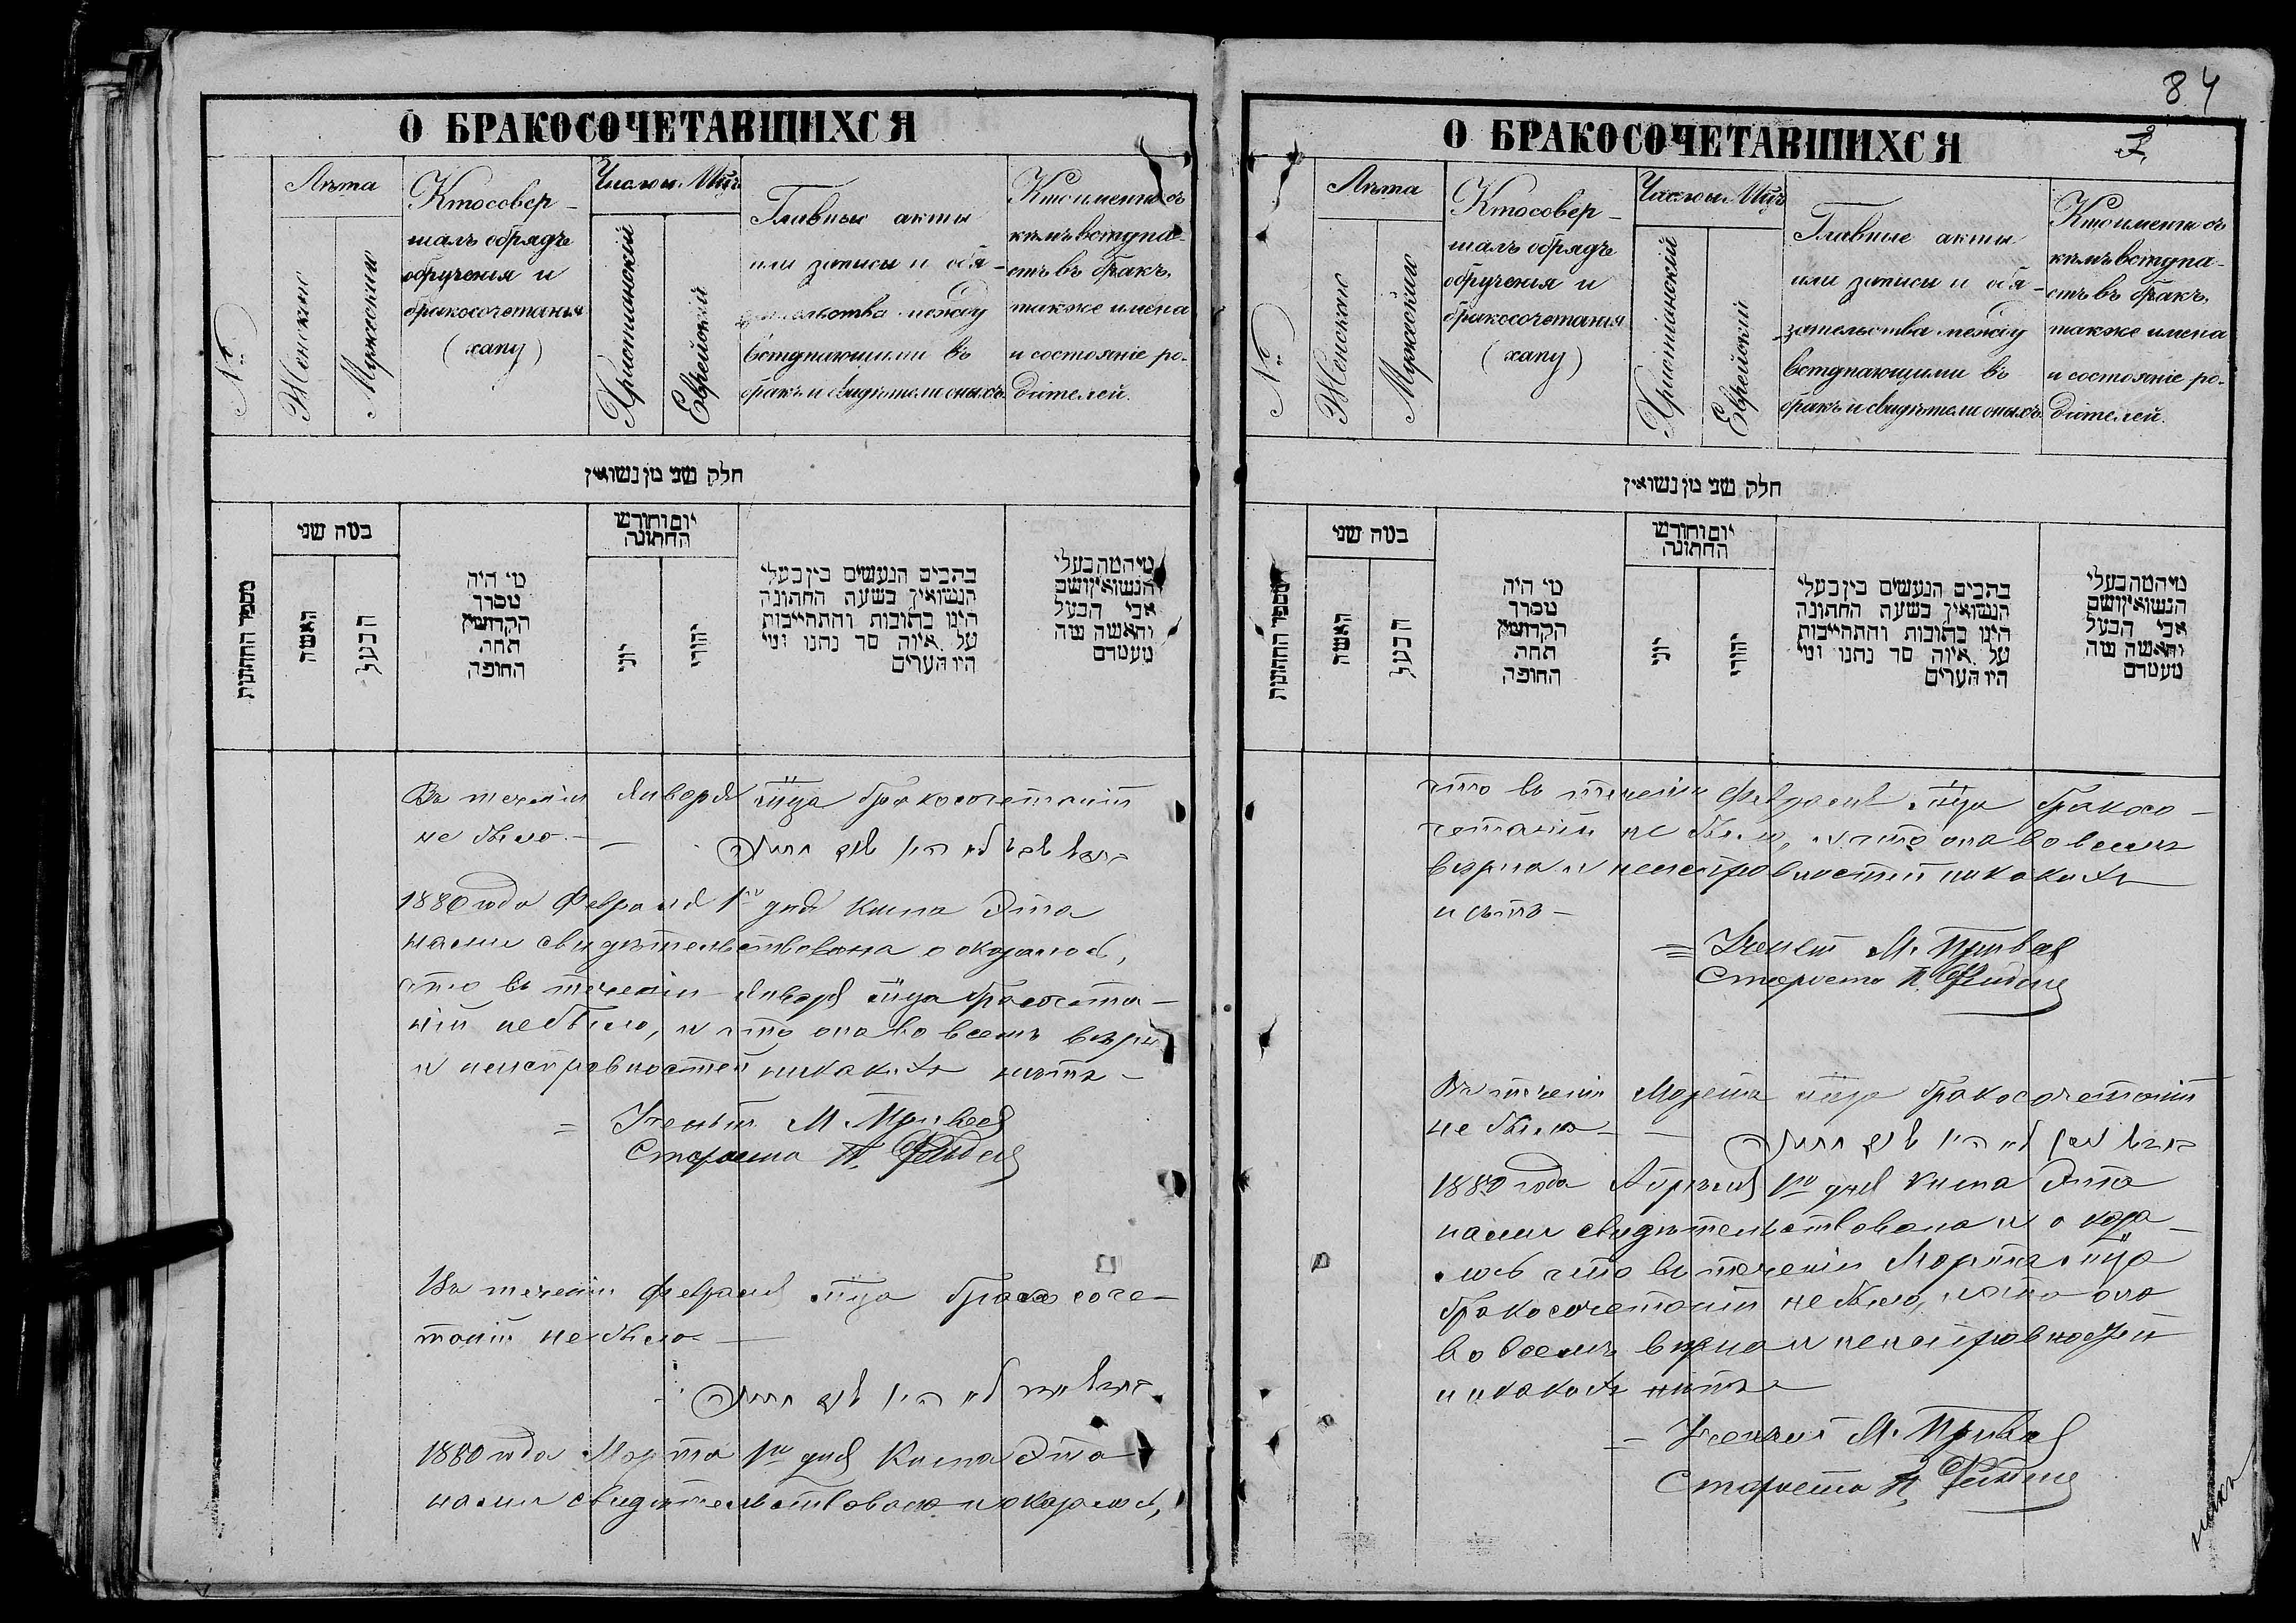 О БРАКОСОЧЕТАВШИХСЯ
№
Лѣта
Женскихъ
Мужескихъ
Кто совер-
шалъ обрядъ
обрученія и
бракосочетанія
(хапу)
Число и Мцъ
Христіанскій
Еврейскій
Главные акты
или записи и обя-
зательства между
вступающими въ
бракъ и свидѣтели оныхъ
Кто именно съ
кѣмъ вступа-
етъ въ бракъ,
также имена
и состояніе ро-
дителей.
חלק שני מן נשואין
מספר החתונות
כמה שני
האשה
הבעל
מי היה
מסדר
הקדושין
תחת
החופה
יום וחודש
החתונה
יוני
יהודי
כתבים הנעשים בין בעלי
הנשואין בשעה החתונה
היינו כתובות והתחייבות
על איזה סך נתנו ומי
היו העדים
מי המה בעלי
הנשואין ושם
אבי הבעל
והאשה מה
מעמדם
Въ теченіи Января мца бракосочетаній
не было.—
1880 года Февраля 1го дня книга Эта
нами свидѣтельствована и оказалось,
что въ теченіи Января мца бракосочета-
ній не было, и что она во всемъ вѣрна
и неисправностей никакихъ нѣтъ—
= Ученый М. Привес
Староста
Въ теченіи Февраля мца бракосоче-
таній не было—
1880 года Марта 1го дня Книга Эта
нами свидѣтельствована и оказалось,
84
О БРАКОСОЧЕТАВШИХСЯ
№
Лѣта
Женскихъ
Мужескихъ
Кто совер-
шалъ обрядъ
обрученія и
бракосочетанія
(хапу)
Число и Мцъ
Христіанскій
Еврейскій
Главные акты
или записи и обя-
зательства между
вступающими въ
бракъ и свидѣтели оныхъ
Кто именно съ
кѣмъ вступа-
етъ въ бракъ,
также имена
и состояніе ро-
дителей.
חלק שני מן נשואין
מספר החתונות
כמה שני
האשה
הבעל
מי היה
מסדר
הקדושין
תחת
החופה
יום וחודש
החתונה
יוני
יהודי
כתבים הנעשים בין בעלי
הנשואין בשעה החתונה
היינו כתובות והתחייבות
על איזה סך נתנו ומי
היו העדים
מי המה בעלי
הנשואין ושם
אבי הבעל
והאשה מה
מעמדם
что въ теченіи Февраля мца бракосо-
четаній не было, и что она во всемъ
вѣрна и неисправностей никакихъ
нѣтъ—
= Ученый М. Привес
Староста
Въ теченіи Марта мца бракосочетаній
не было—
1880 года Апрѣля 1го дня книга Эта
нами свидѣтельствована и оказа-
лось что въ теченіи Марта мца
бракосочетаній не было, и что она
во всемъ вѣрна и неисправностей
никакихъ нѣтъ—
= Ученый М. Привес
Староста